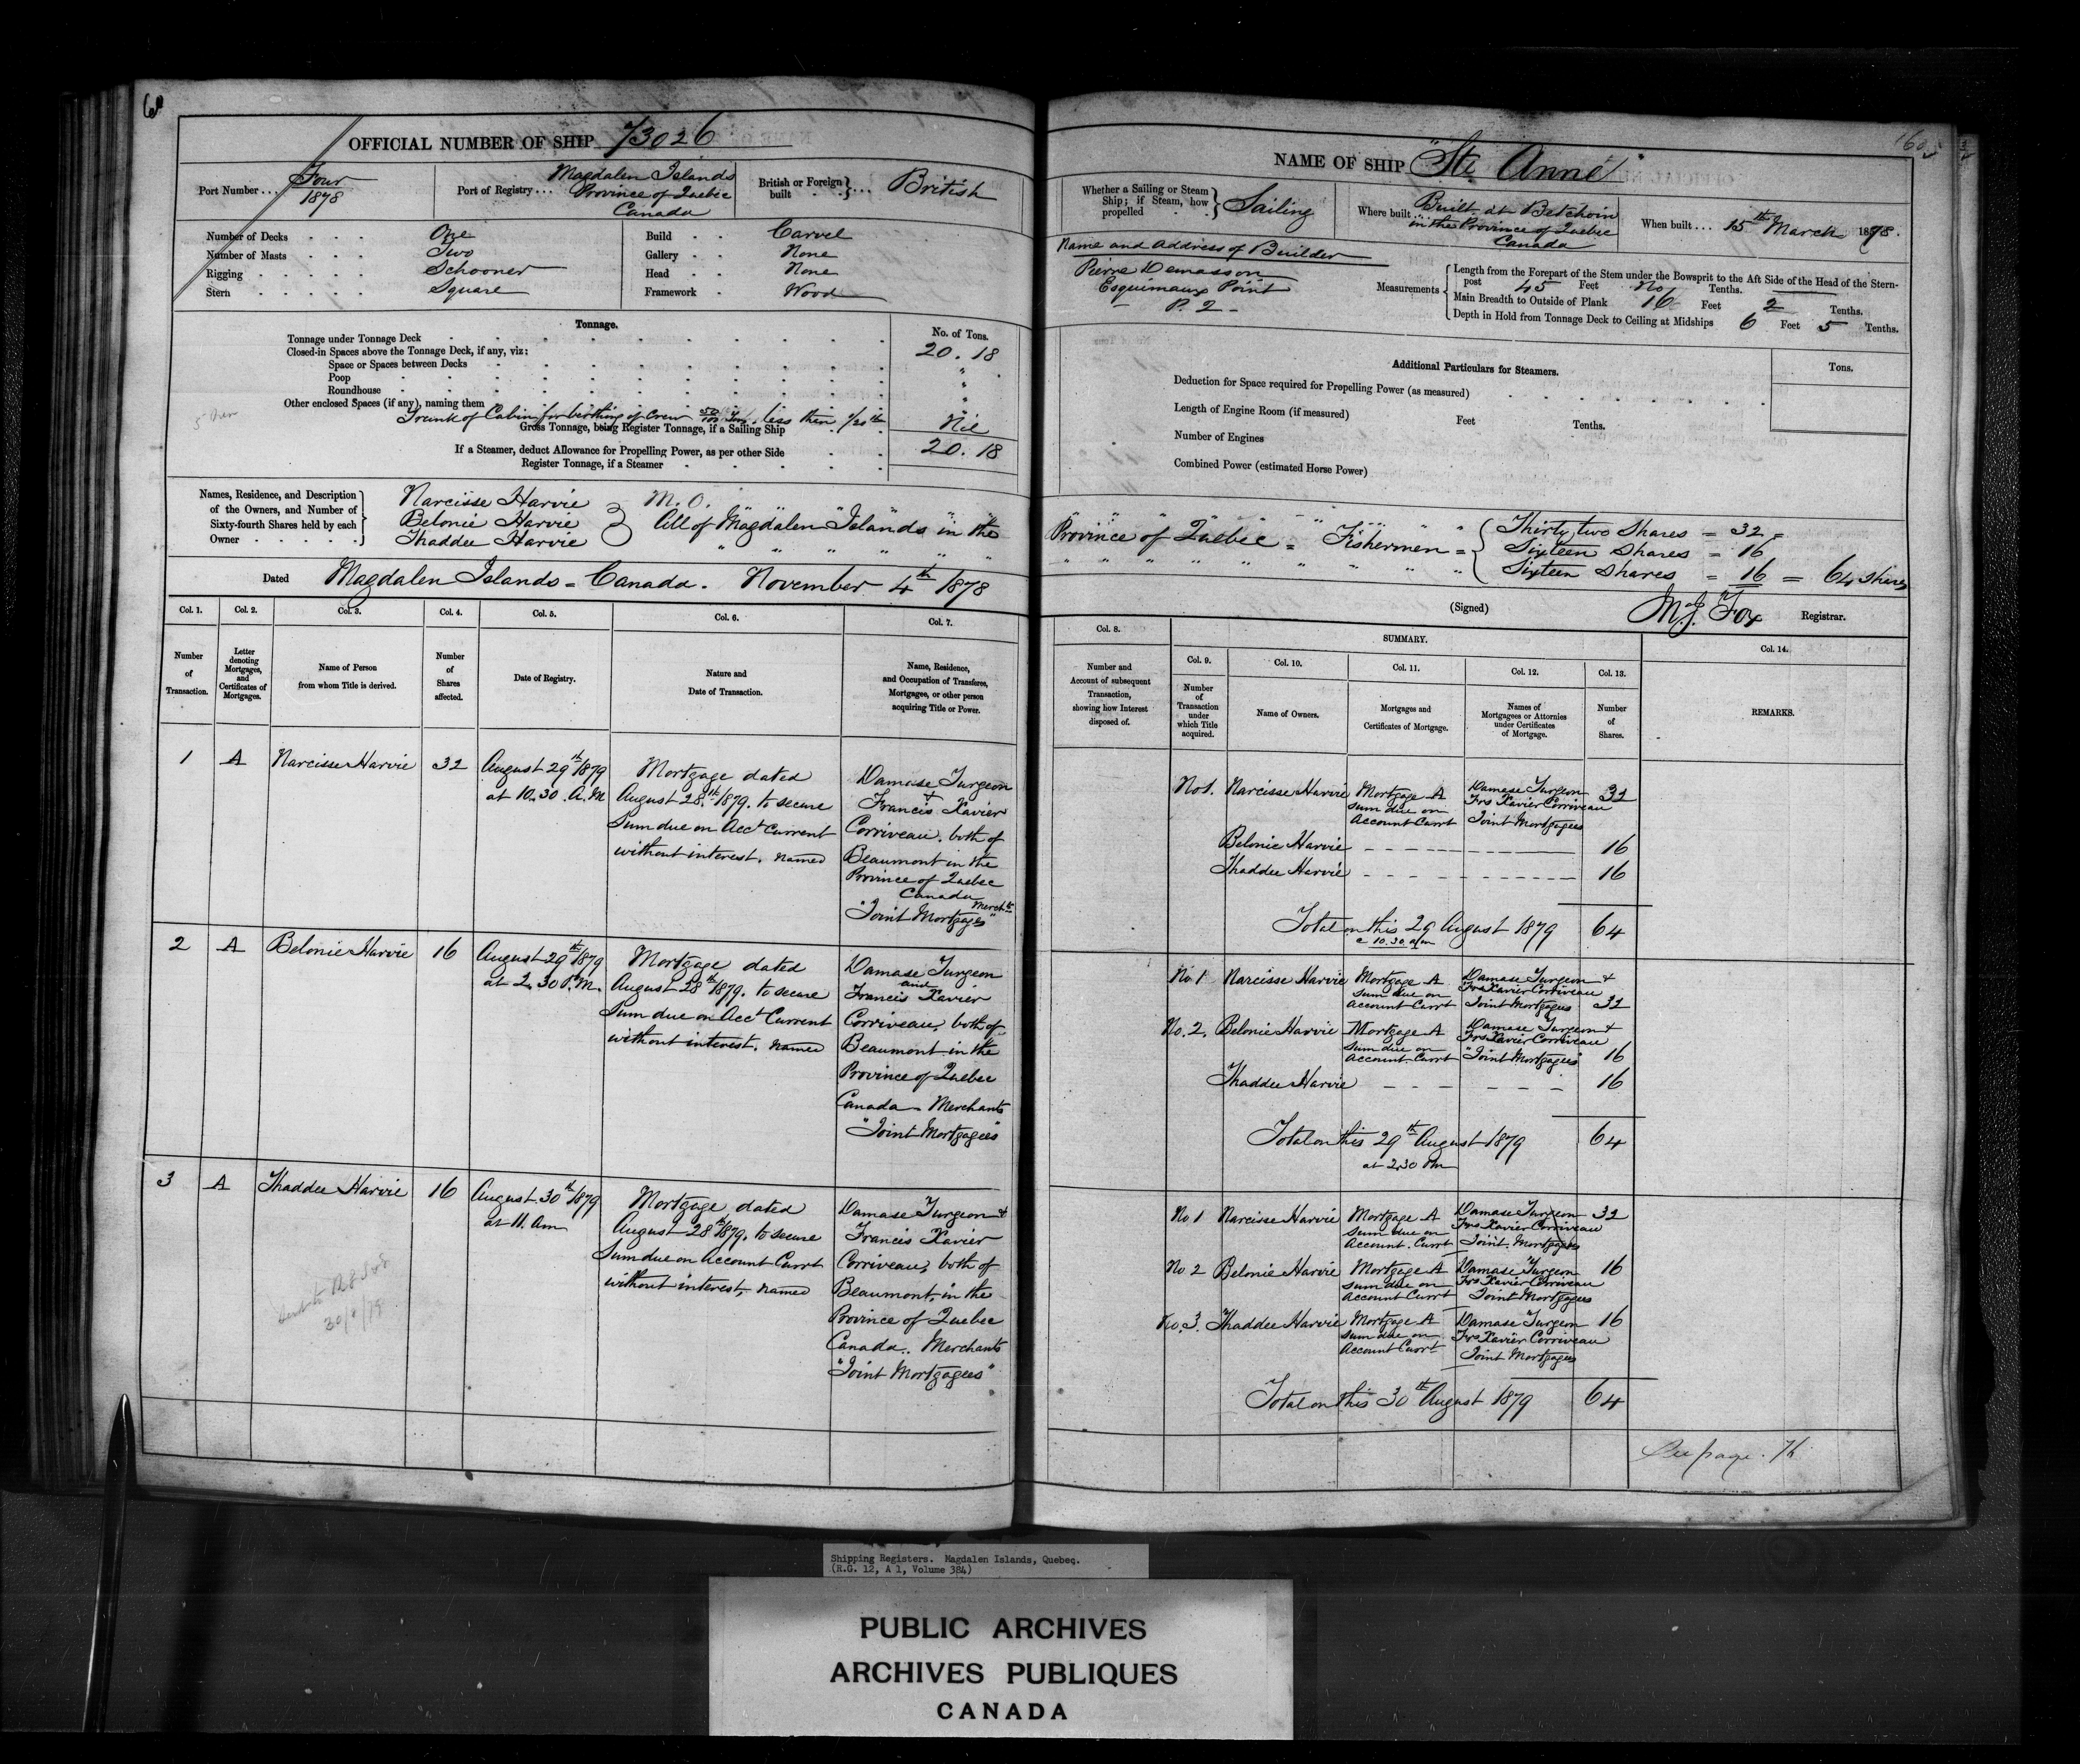 6
OFFICIAL NUMBER OF SHIP 73026
Port Number . . . Four 1878
Port of Registry . . . Magdalen Islands
Province of Quebec
Canada
British or Foreign built } . . . British
Number of Decks . . . One
Number of Masts . . . Two
Rigging . . . . . Schooner
Stern . . . . . Square
Build . . Carvel
Gallery . . None
Head . . None
Framework . Wood
Tonnage.
No. of Tons.
Tonnage under Tonnage Deck 20.18
Closed-in Spaces above the Tonnage Deck, if any, viz:
Space or Spaces between Decks "
Poop "
Roundhouse "
Other enclosed Spaces (if any), naming them
Trunk of Cabin for berthing of Crew 50/100 Tons. less then 1/20th Nil
5 Men
Gross Tonnage, being Register Tonnage, if a Sailing Ship 20.18
If a Steamer, deduct Allowance for Propelling Power, as per other Side
Register Tonnage, if a Steamer
Names, Residence, and Description
of the Owners, and Number of
Sixty-fourth Shares held by each
Owner . . . . .
Narcisse Harvie M.O.
Belonie Harvie } All of Magdalen Islands in the
Thaddee Harvie
Dated Magdalen Islands = Canada. November 4th 1878
Col. 1. Col. 2. Col. 3. Col. 4. Col. 5. Col. 6. Col. 7.
Number of Transaction.
Letter denoting Mortgages, and Certificates of Mortgages.
Name of Person from whom Title is derived.
Number of Shares affected.
Date of Registry.
Nature and Date of Transaction.
Name, Residence, and Occupation of Transferee, Mortgagee, or other person acquiring Title or Power.
1 A Narcisse Harvie 32
August 29th 1879
at 10.30 A.M
Mortgage dated
August 28th 1879. to secure
Sum due on Acct Current
without interest. named
Damase Turgeon
+
Francis Xavier
Corriveau. both of
Beaumont in the
Province of Quebec
Canada
Merchts
"Joint Mortgages"
2 A Belonie Harvie 16
August 29th 1879
at 2.30 P.M.
Mortgage dated
August 28th 1879. to secure
Sum due on Acct Current
without interest. named
Damase Turgeon
and
Francis Xavier
Corriveau, both of
Beaumont in the
Province of Quebec
Canada - Merchants
"Joint Mortgagees"
3 A Thaddee Harvie 16
August 30th 1879
at 11. Am
Mortgage dated
August 28th 1879. to secure
Sum due on Account Currt
without interest, named
Damase Turgeon +
Francis Xavier
Corriveau, both of
Beaumont, in the
Province of Quebec
Canada.. Merchants
"Joint Mortgagees"
NAME OF SHIP "Ste Anne"
160
Whether a Sailing or Steam
Ship; if Steam, how
propelled . . } Sailing
Where built . . . Built at Betchoin
in the Province of Quebec
Canada
When built . . . 15th March 1878.
Name and Address of Builder
Pierre Demasson
Esquimaux Point
P. 2 -
Measurements
Length from the Forepart of the Stem under the Bowsprit to the Aft Side of the Head of the Stern-
post 45 Feet No Tenths.
Main Breadth to Outside of Plank 16 Feet 2 Tenths.
Depth in Hold from Tonnage Deck to Ceiling at Midships 6 Feet 5 Tenths.
Additional Particulars for Steamers.
Tons.
Deduction for Space required for Propelling Power (as measured)
Length of Engine Room (if measured) Feet Tenths.
Number of Engines
Combined Power (estimated Horse Power)
Province of Quebec = Fishermen =
Thirty two Shares = 32 =
Sixteen Shares = 16
Sixteen Shares = 16 = 64 shares
(Signed) M. J. Fox Registrar.
Col. 8.
SUMMARY.
Col. 9. Col. 10. Col. 11. Col. 12. Col. 13. Col. 14.
Number and Account of subsequent Transaction, showing how Interest disposed of.
Number of Transaction under which Title acquired.
Name of Owners.
Mortgages and Certificates of Mortgage.
Names of Mortgagees or Attornies under Certificates of Mortgage.
Number of Shares.
REMARKS.
No1. Narcisse Harvie
Mortgage A
sum due on
Account Currt
Damase Turgeon
Frs Xavier Corriveau
Joint Mortgagees
32
Belonie Harvie 16
Thaddee Harvie 16
Total on this 29 August 1879 64
@ 10.30 a/m
No 1 Narcisse Harvie
Mortgage A
sum due on
Account Currt
Damase Turgeon +
Frs Xavier Corriveau
Joint Mortgagees
32
No. 2. Belonie Harvie
Mortgage A
sum due on
Account Currt
Damase Turgeon +
Frs Xavier Corriveau
"Joint Mortgagees"
16
Thaddee Harvie 16
Total on this 29th August 1879 64
at 2.30 Pm
No 1 Narcisse Harvie
Mortgage A
Sum due on
Account. Currt
Damase Turgeon
Frs Xavier Corriveau
Joint. Mortgagees
32
No. 2 Belonie Harvie
Mortgage A
sum due on
Account Currt
Damase Turgeon
Frs Xavier Corriveau
Joint Mortgagees
16
No. 3. Thaddee Harvie
Mortgage A
sum due on
Account Currt
Damase Turgeon
Frs Xavier Corriveau
Joint Mortgagees
16
Total on this 30th August 1879 64
See page. 76
Shipping Registers. Magdalen Islands, Quebec.
(R.G. 12, A 1, Volume 384)
PUBLIC ARCHIVES
ARCHIVES PUBLIQUES
CANADA